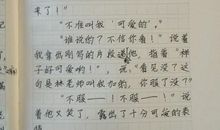 来了！"
"不准叫我'可爱的'，"
"谁说的？不信你看！"说着
我拿出刚写的月段送他，指着"样
子好可爱哟！"，说，"看见没？这
句是林老师叫我加的，你服了没？"
"不服——！不服——！"说
着他又笑了，露出了十分可爱的表